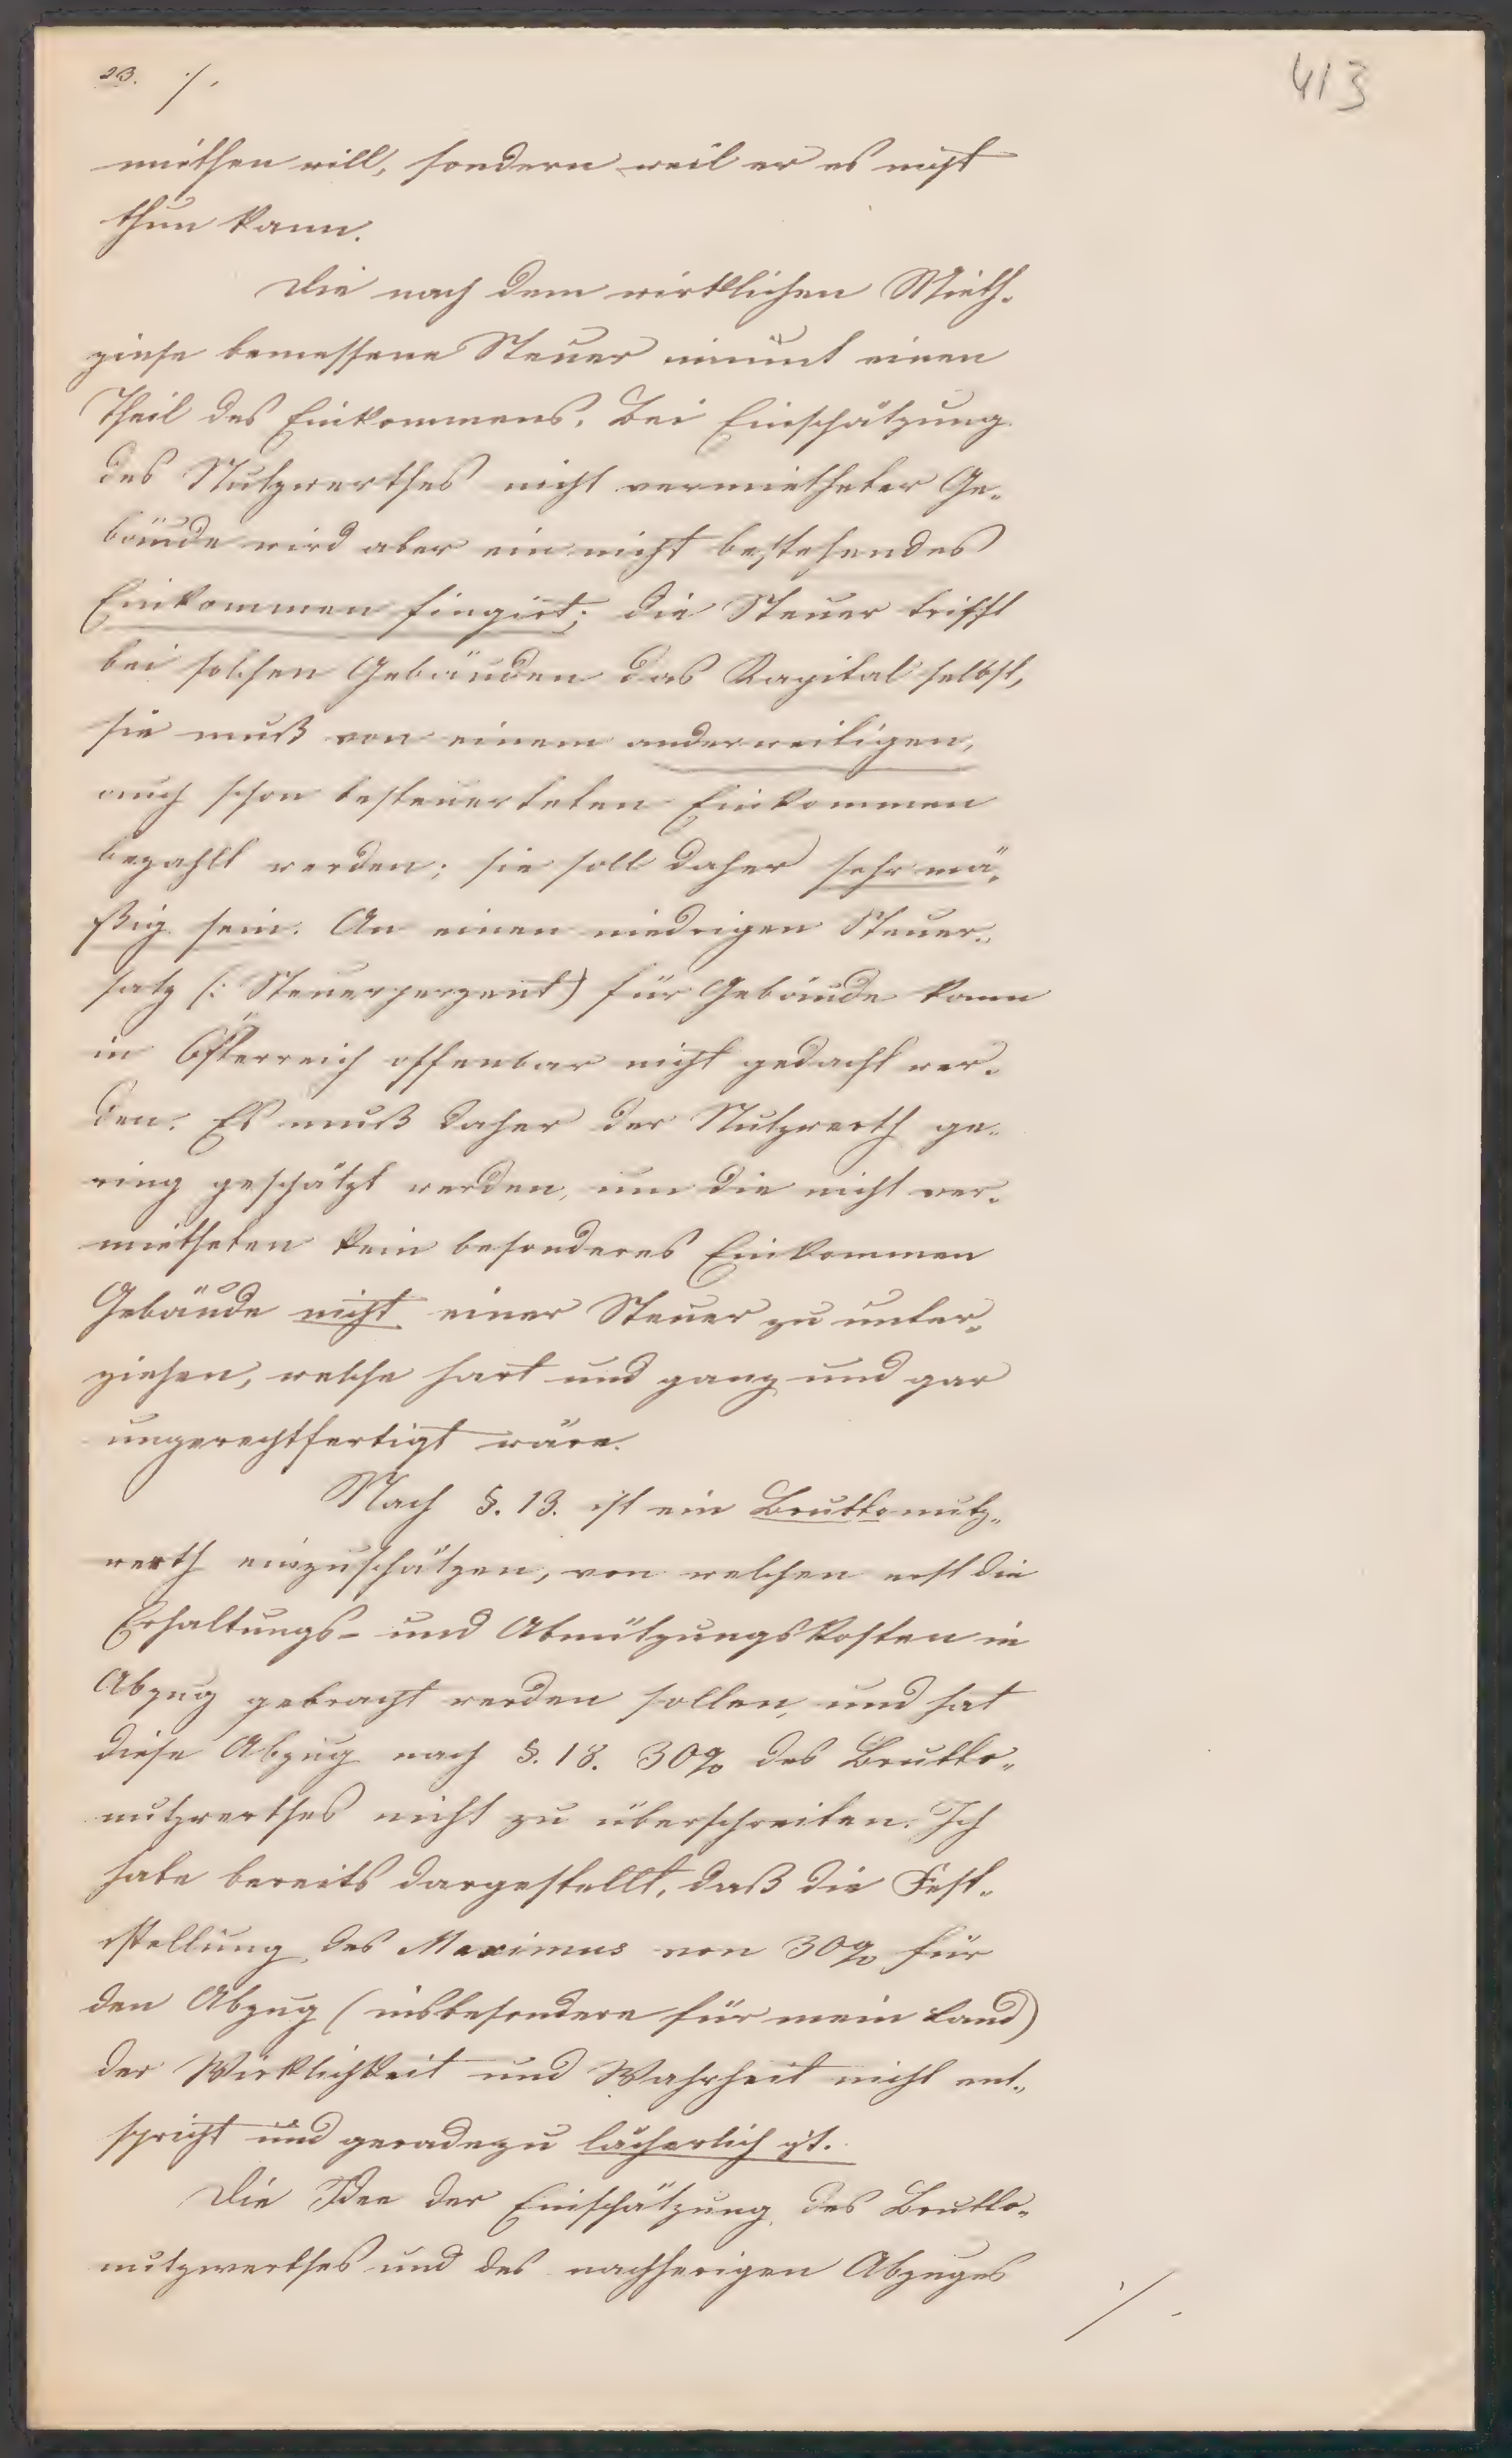 23. ·/.
413
miethen will, sondern weil er es nicht
thun kann.
Die nach dem wirklichen Mieth-
zinse bemessene Steuer nimmt einen
Theil des Einkommens. Bei Einschätzung
des Nutzwerthes nicht vermietheter Ge-
bäude wird aber ein nicht bestehendes
Einkommen fingirt; die Steuer trifft
bei solchen Gebäuden das Kapital selbst,
sie muß von einem anderweitigen,
auch schon besteuerteten Einkommen
bezahlt werden; sie soll daher sehr mä-
ßig sein. An einen niedrigen Steuer-
satz (: Steuerperzent) für Gebäude kann
in Österreich offenbar nicht gedacht wer-
den. Es muß daher der Nutzwerth ge-
ring geschätzt werden, um die nicht ver-
mietheten kein besonderes Einkommen
Gebäude nicht einer Steuer zu unter-
ziehen, welche hart und ganz und gar
ungerechtfertigt wäre.
Nach §. 13. ist ein Bruttonutz-
werth einzuschätzen, von welchen erst die
Erhaltungs- und Abnützungskosten in
Abzug gebracht werden sollen, und hat
diese Abzug nach §. 18. 30% des Brutto-
nutzwerthes nicht zu überschreiten. Ich
habe bereits dargestellt, daß die Fest-
stellung des Maximus von 30% für
den Abzug (insbesondere für mein Land)
der Wirklichkeit und Wahrheit nicht ent-
spricht und geradezu lächerlich ist.
Die Idee der Einschätzung des Brutto-
nutzwerthes und des nachherigen Abzuges
·/.